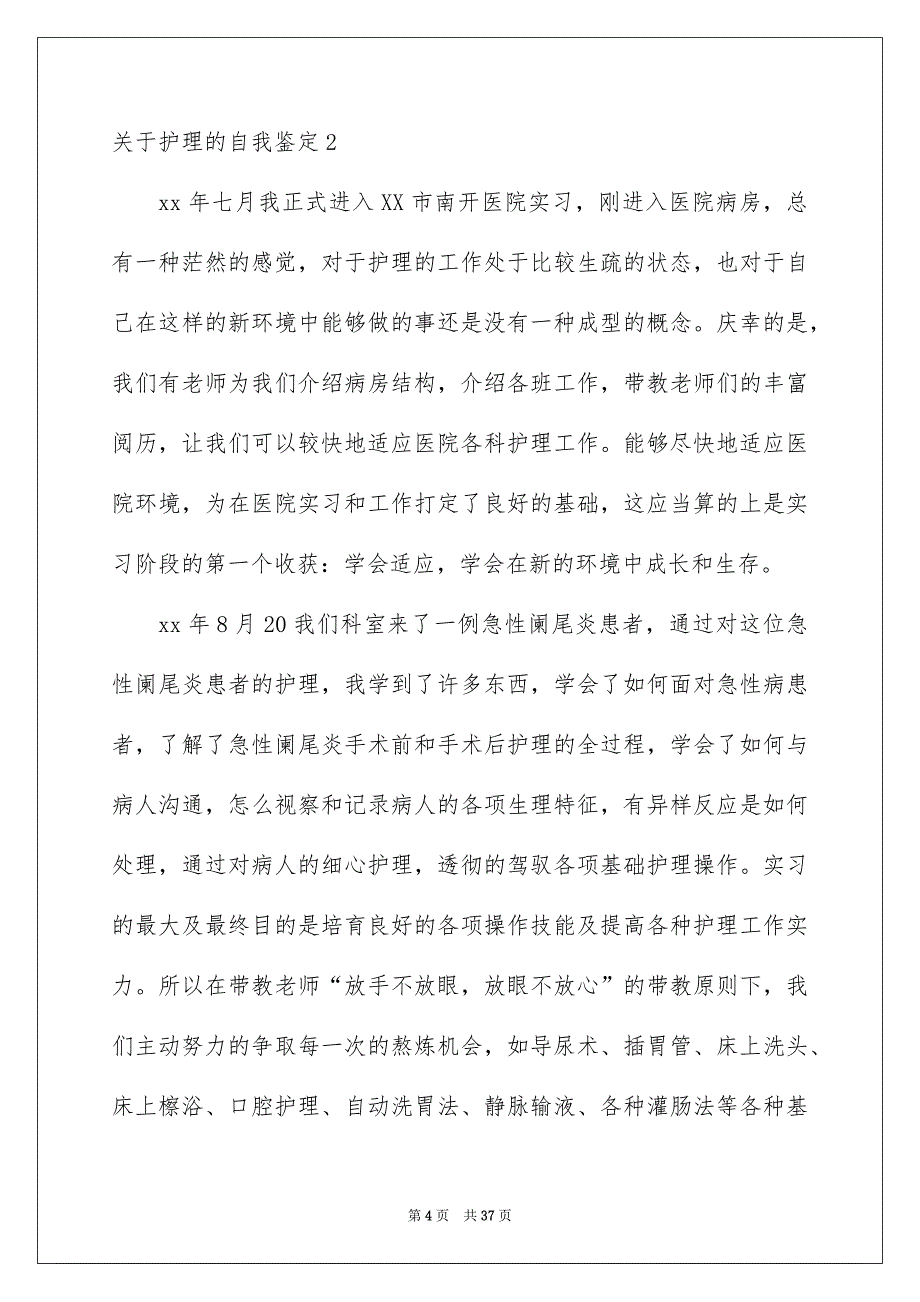 关于护理的自我鉴定2
xx 年七月我正式进入 XX 市南开医院实习，刚进入医院病房，总
有一种茫然的感觉，对于护理的工作处于比较生疏的状态，也对于自
己在这样的新环境中能够做的事还是没有一种成型的概念。庆幸的是，
我们有老师为我们介绍病房结构，介绍各班工作，带教老师们的丰富
阅历，让我们可以较快地适应医院各科护理工作。能够尽快地适应医
院环境，为在医院实习和工作打定了良好的基础，这应当算的上是实
习阶段的第一个收获：学会适应，学会在新的环境中成长和生存。
xx 年 8 月 20 我们科室来了一例急性阑尾炎患者，通过对这位急
性阑尾炎患者的护理，我学到了许多东西，学会了如何面对急性病患
者，了解了急性阑尾炎手术前和手术后护理的全过程，学会了如何与
病人沟通，怎么视察和记录病人的各项生理特征，有异样反应是如何
处理，通过对病人的细心护理，透彻的驾驭各项基础护理操作。实习
的最大及最终目的是培育良好的各项操作技能及提高各种护理工作实
力。所以在带教老师“放手不放眼，放眼不放心”的带教原则下，我
们主动努力的争取每一次的熬炼机会，如导尿术、插胃管、床上洗头、
床上檫浴、口腔护理、自动洗胃法、静脉输液、各种灌肠法等各种基
第 4 页 共 37 页